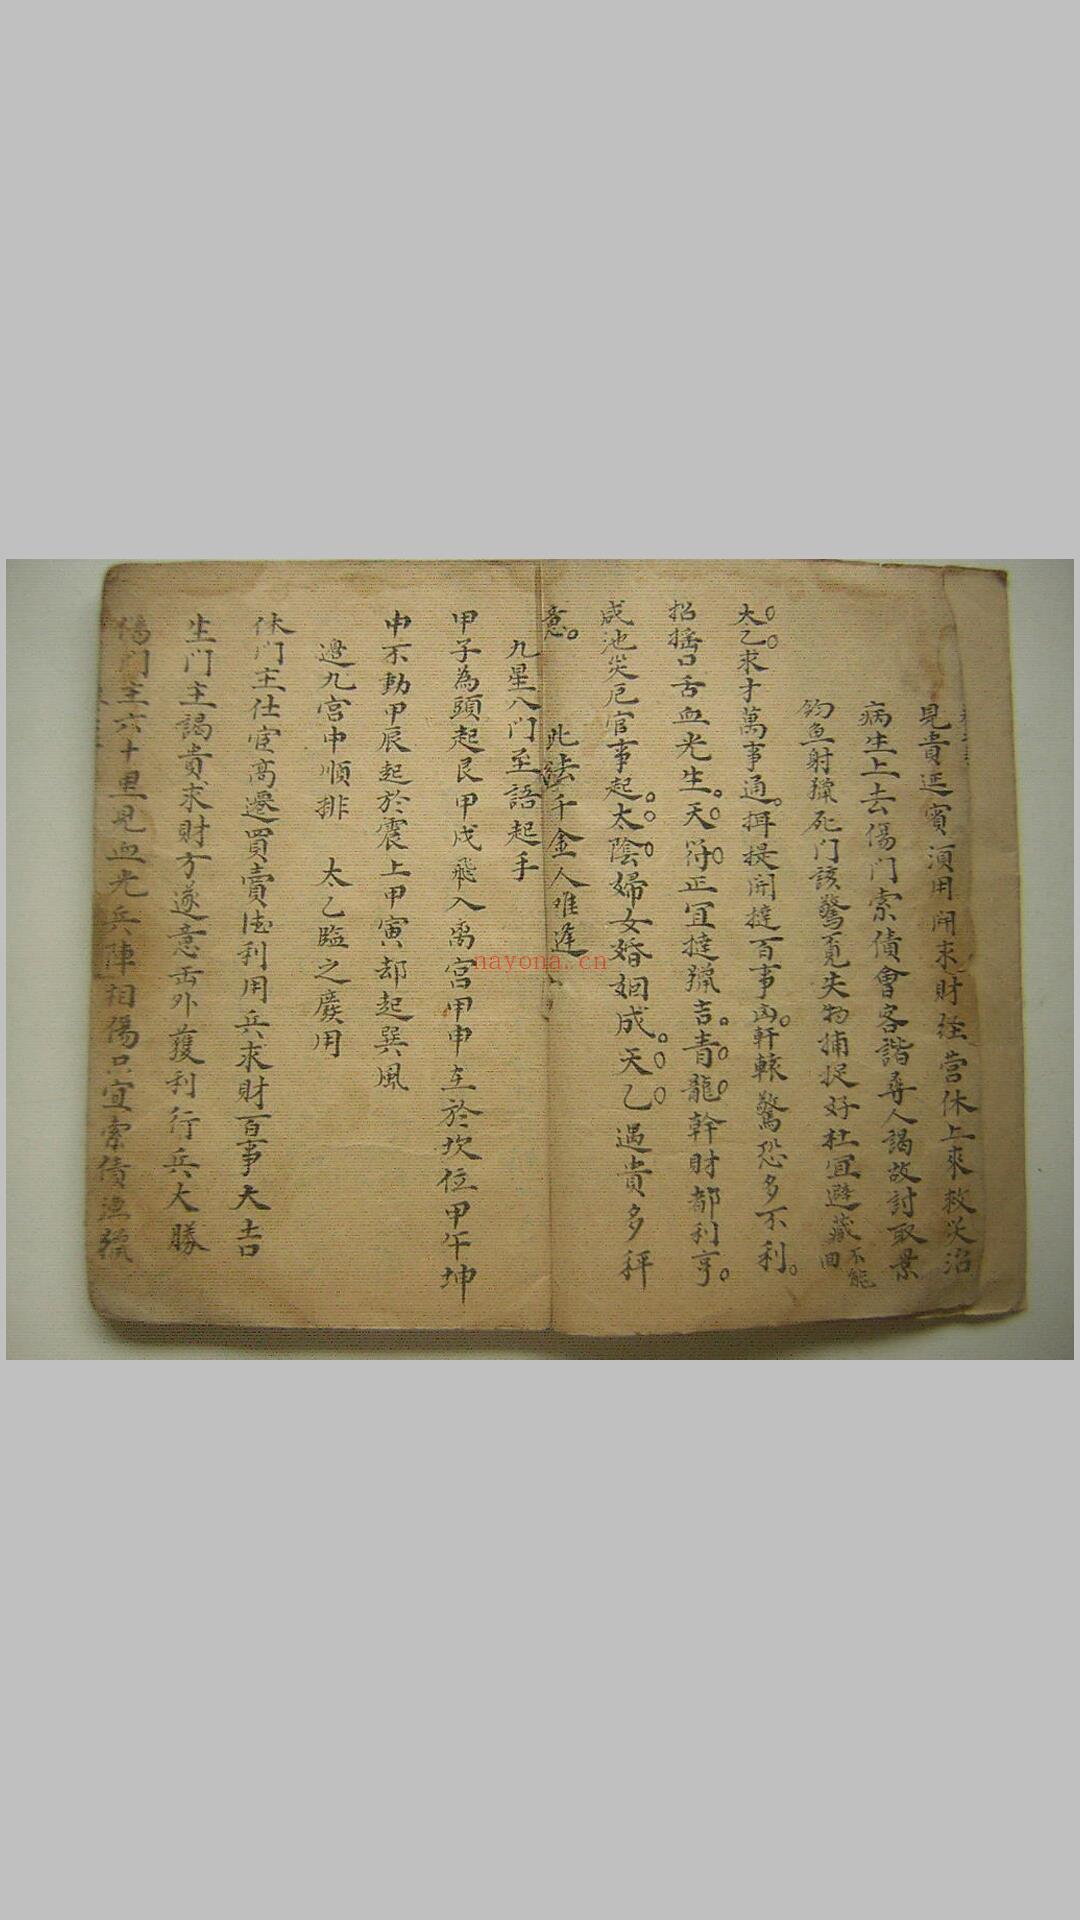 見貴延賓須用開求財經營休上來救災治
病生上去傷門索債會客諧尋人謁故討取景
釣魚射獵死門該驚覓失物捕捉好杜宜避藏
不能回
太乙求才萬事通挕提開撻百事凶軒轅驚恐多不利
招搖口舌血光生天符正宜撻獵吉青龍幹財都利亨
咸池災厄官事起太陰婦女婚姻成天乙遇貴多秤
意
此法千金人難逢
九星八门至語起手
甲子為頭起艮甲戌飛入离宮甲申立於坎位甲午坤
申不動甲辰起於震上甲寅却起巽風
邊九宮中順排 太乙臨之廢用
休门主仕宦高遷買賣法利用兵求財百事大吉
生门主謁貴求財方遂意西外獲利行兵大勝
傷门主六十里見血光兵陣相傷只宜索債漁獵
nayona.cn